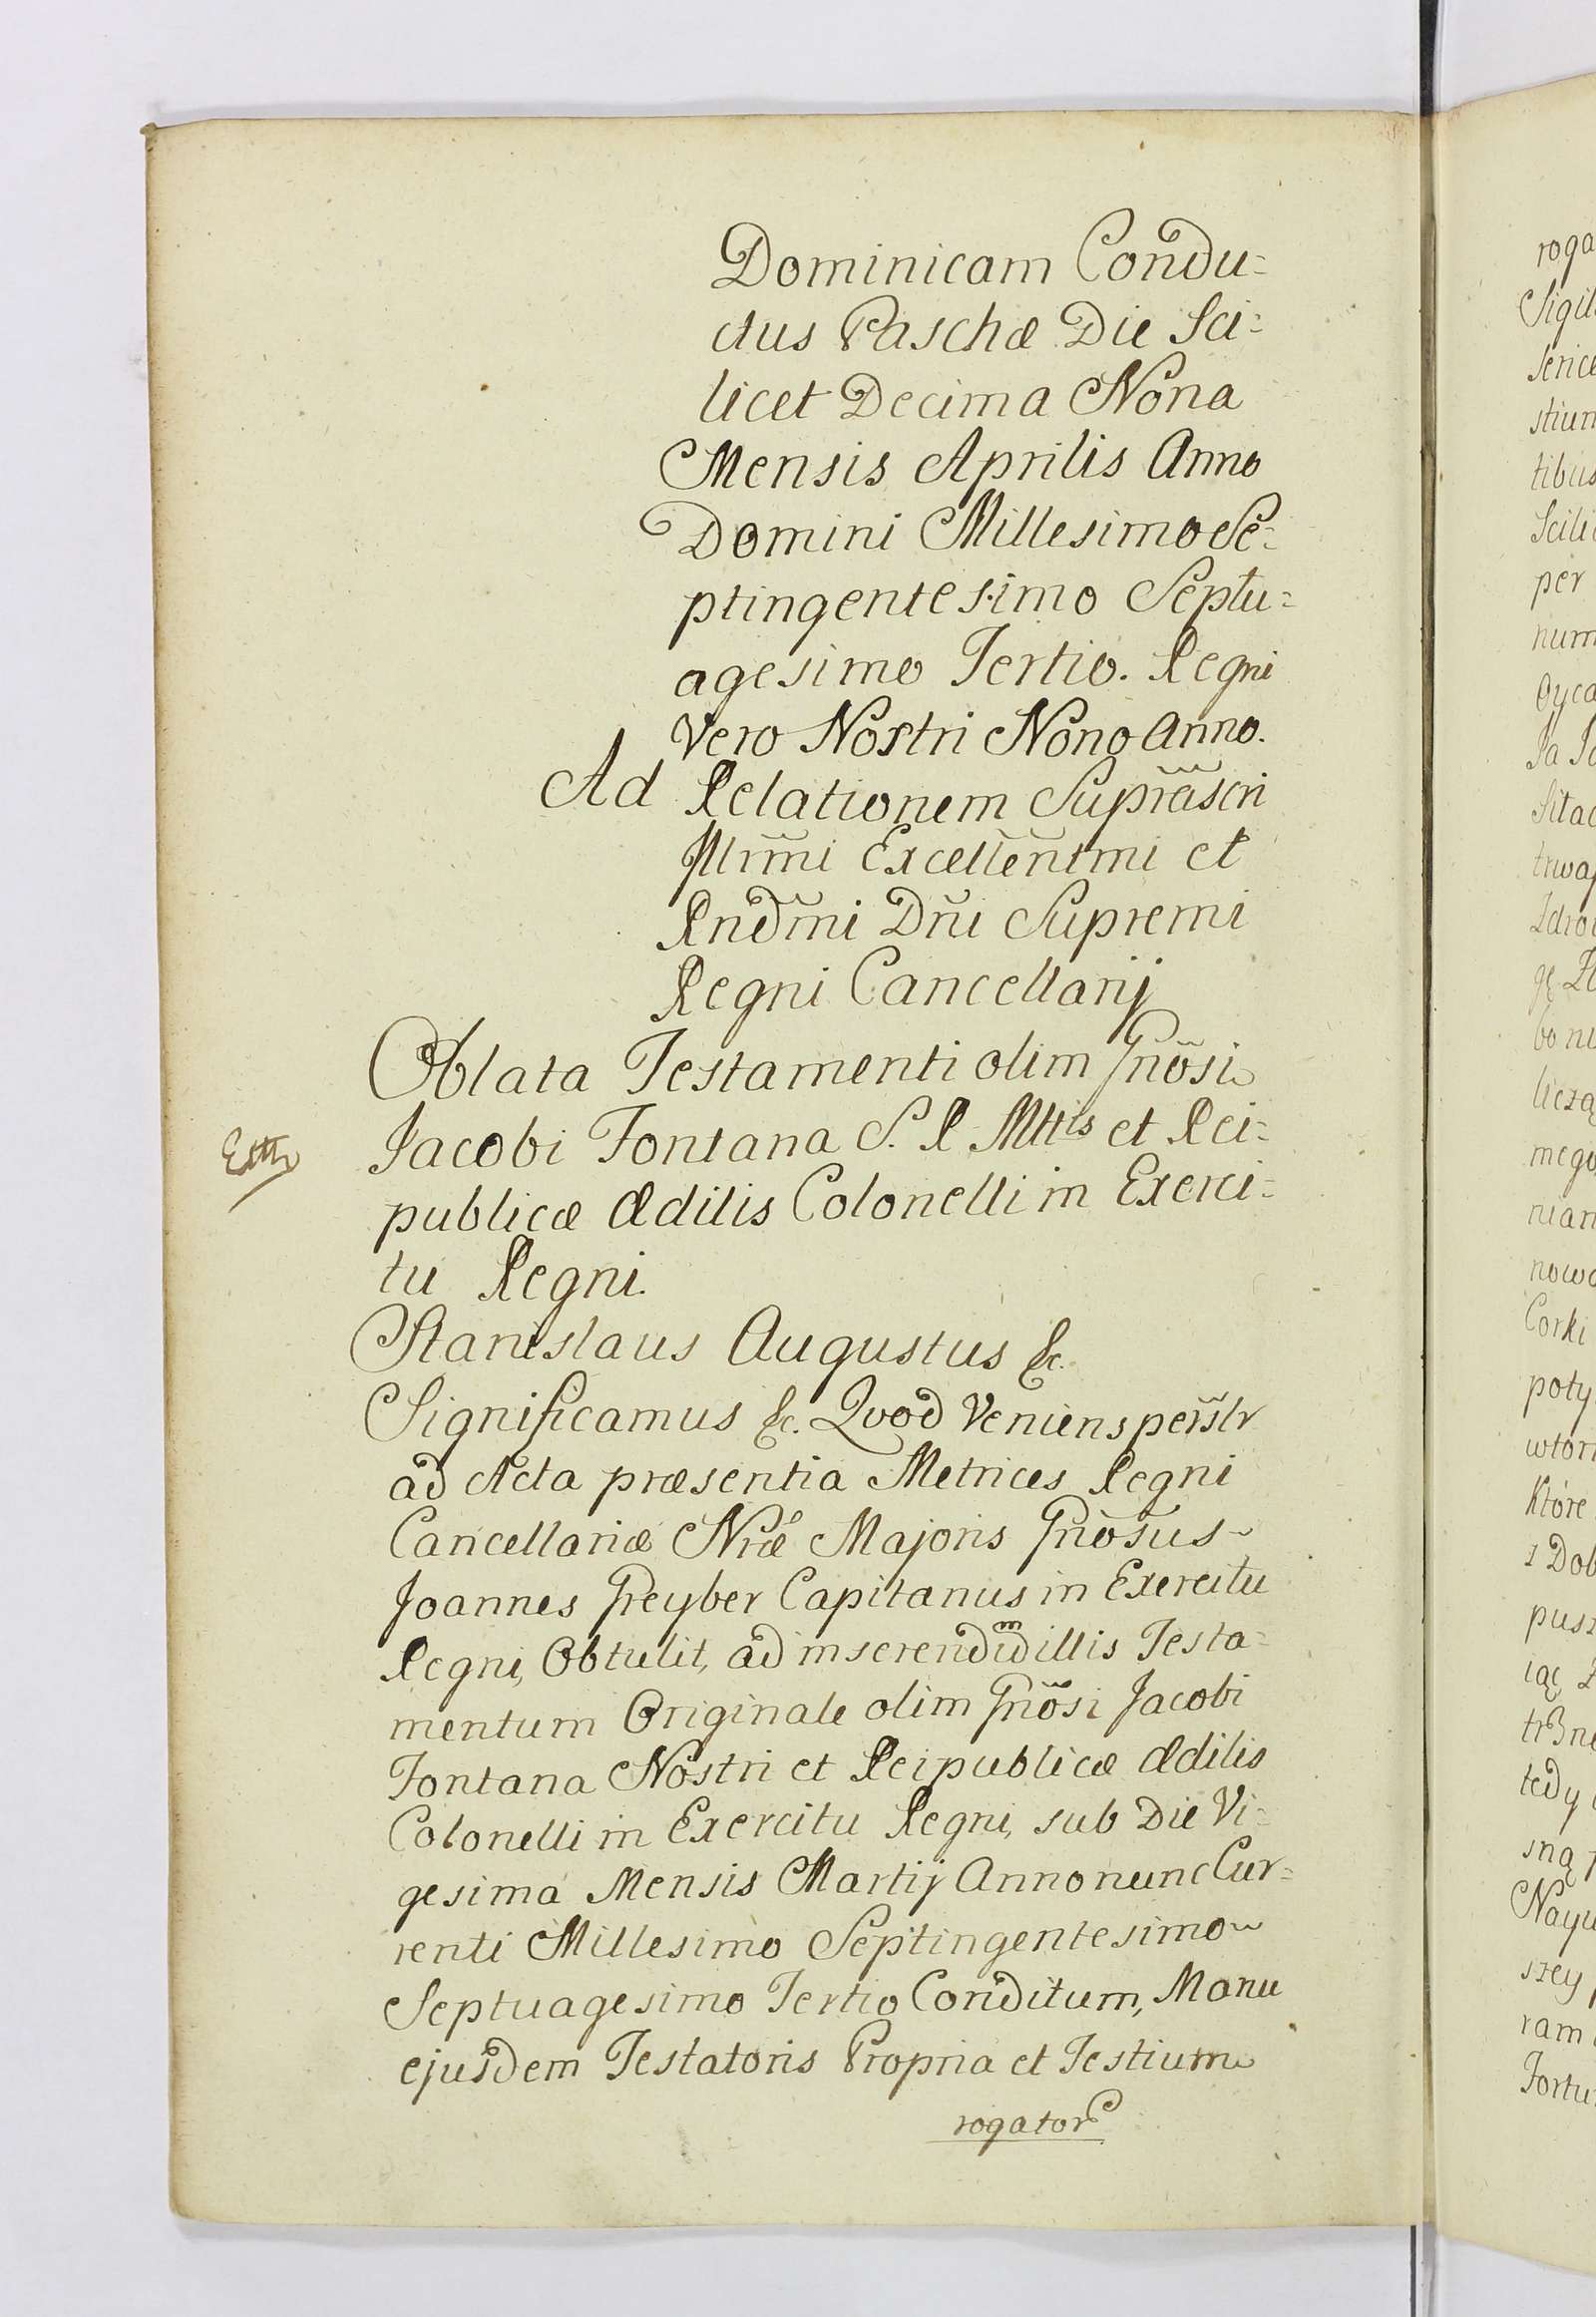 Dominicam Condu=
ctus Paschæ Die Sci=
licet Decima Nona
Mensis Aprilis Anno
Domini Millesimo Se=
ptingentesimo Septu=
agesimo Tertio. Regni
Vero Nostri Nono Anno.
Ad Relationem Suprãscri
Illrm̃i Excellent̃mi et
Rnd̃mi Dñi Supremi
Regni Cancellarij
Oblata Testamenti olim Gnõsi
Jacobi Fontana S. R. Mttis et Rei=
publicæ Ædilis Colonelli in Exerci=
tu Regni.
Stanislaus Augustus &c.
Significamus &c. Quod Veniens perslr̃
ad Acta præsentia Metrices Regni
Cancellariæ Nræ Majoris Gnõsus
Joannes Greyber Capitanus in Exercitu
Regni, Obtulit, ad inserendum illis Testa=
mentum Originale olim Gnõsi Jacobi
Fontana Nostri et Reipublicæ Ædilis
Colonelli in Exercitu Regni, sub Die Vi=
gesima Mensis Martij Anno nunc Cur=
renti Millesimo Septingentesimo
Septuagesimo Tertio Conditum, Manu
ejusdem Testatoris Propria et Testium
rogator
roga
Sigil
Serice
stium
tibus
Scili
per
num
Oyca